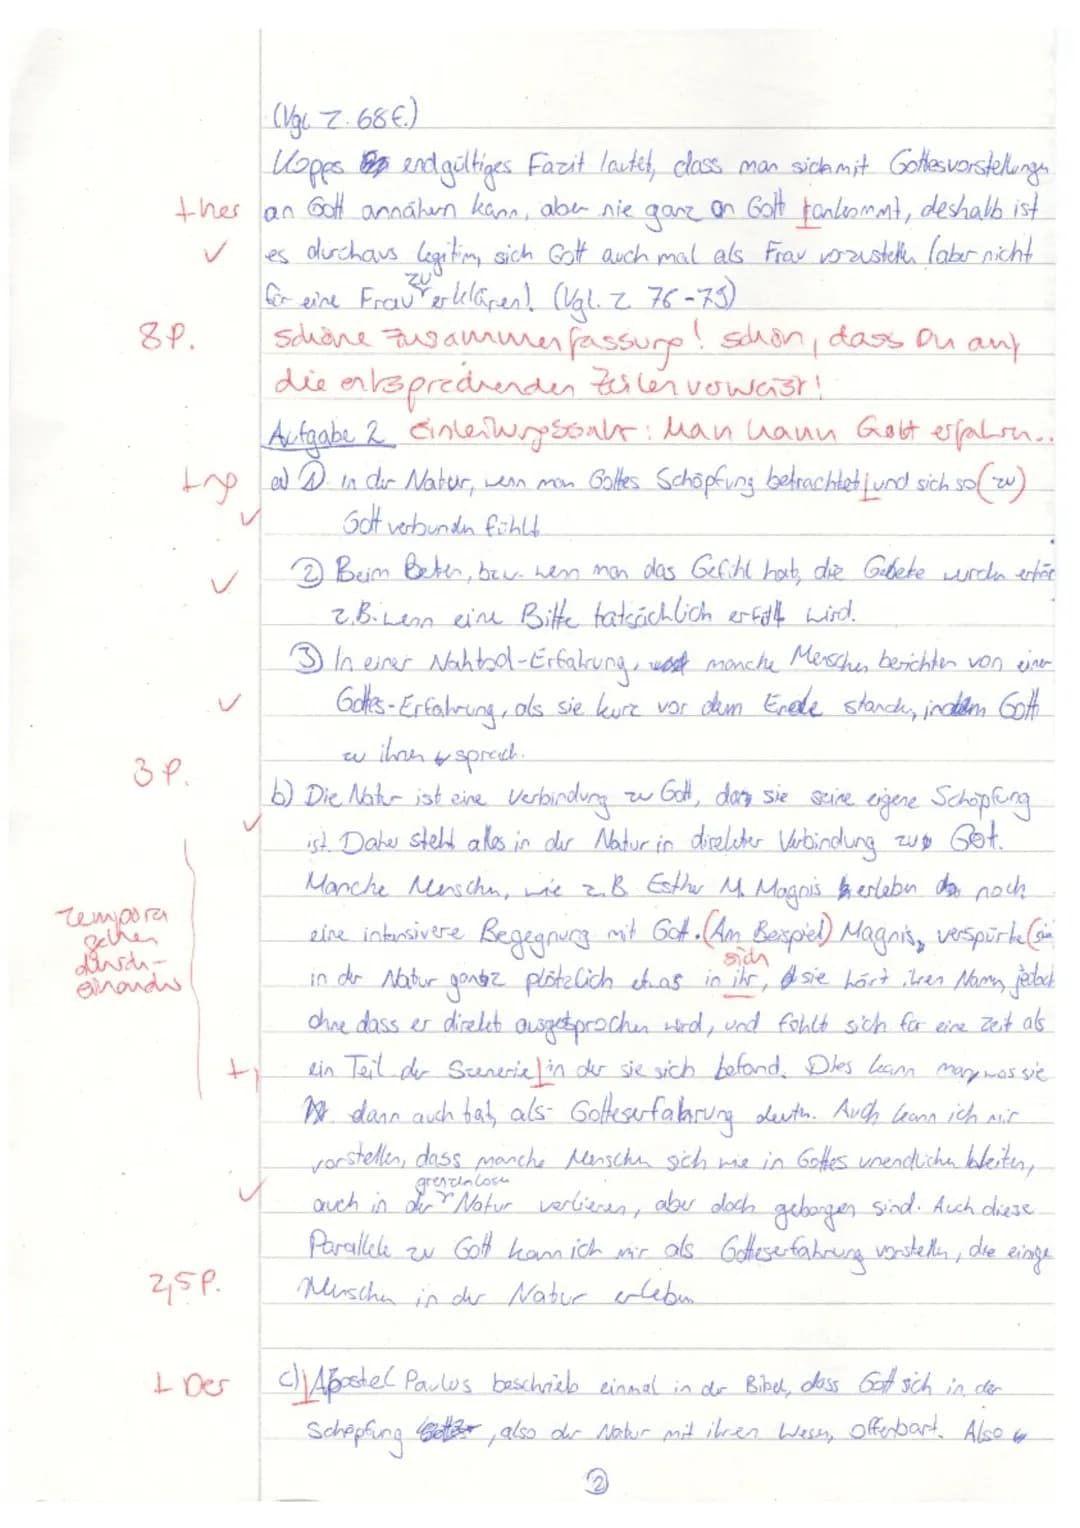 (Vgl. Z. 68f.)
Kopps endgültiges Fazit lautet, dass man sich mit Gottesvorstellungen
+her an Gott annähern kann, aber nie ganz an Gott rankommt, deshalb ist
✓ es durchaus legitim, sich Gott auch mal als Frau vorzustellen (aber nicht
für eine Frau zu erklären). (Vgl. Z. 76-79)
8 P. schöne Zusammenfassung! schön, dass Du auf
die entsprechenden Zeilen verweist!
Aufgabe 2 Einleitungssatz: Man kann Gott erfahren...
a) ① in der Natur, wenn man Gottes Schöpfung betrachtet und sich so (zu)
✓ Gott verbunden fühlt
✓ ② Beim Beten, bzw. wenn man das Gefühl hat, die Gebete wurden
z.B. wenn eine Bitte tatsächlich erfüllt wird.
③ In einer Nahtod-Erfahrung, manche Menschen berichten von einer
✓ Gottes-Erfahrung, als sie kurz vor dem Ende standen, indem Gott
zu ihnen sprach.
3 P.
b) Die Natur ist eine Verbindung zu Gott, da sie seine eigene Schöpfung
✓ ist. Daher steht alles in der Natur in direkter Verbindung zu Gott.
Manche Menschen, wie z.B. Esther M. Magnis erleben noch
Tempora
gehen
durch-
einander
eine intensivere Begegnung mit Gott. (Am Beispiel) Magnis, verspürte (sie
sich
in der Natur ganz plötzlich etwas in ihr, sie hört ihren Namen, jedoch
ohne dass er direkt ausgesprochen wird, und fühlt sich für eine Zeit als
+, ein Teil der Szenerie in der sie sich befand. Dies kann man, was sie
dann auch tat, als Gotteserfahrung deuten. Auch kann ich mir
vorstellen, dass manche Menschen sich wie in Gottes unendlichen Weiten,
grenzenlosen
✓ auch in der Natur verlieren, aber doch geborgen sind. Auch diese
Parallele zu Gott kann ich mir als Gotteserfahrung vorstellen, die einige
2,5 P. Menschen in der Natur erleben
⊥ Der c) Apostel Paulus beschrieb einmal in der Bibel, dass Gott sich in der
Schöpfung, also der Natur mit ihren Wesen, offenbart. Also
②